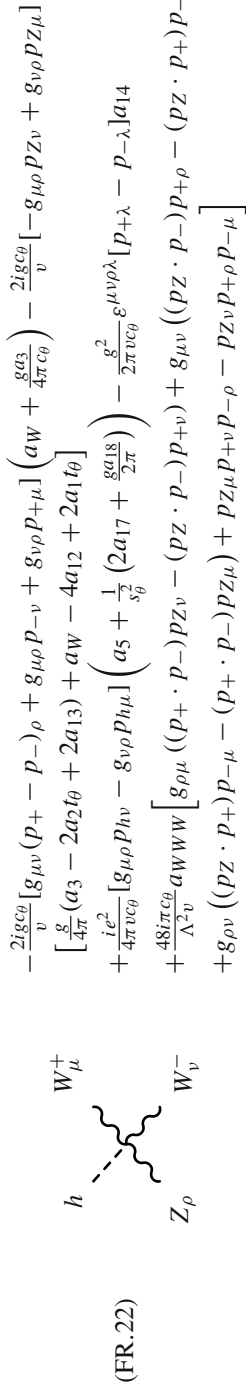 (FR.22)
h
W_μ^+
Z_ρ
W_ν^-
-\frac{2igc_θ}{v}[g_{μν}(p_+ - p_-)_ρ + g_{μρ}p_{-ν} + g_{νρ}p_{+μ}]\left(a_W + \frac{ga_3}{4πc_θ}\right) - \frac{2igc_θ}{v}[-g_{μρ}p_{Zν} + g_{νρ}p_{Zμ}]
\left[\frac{g}{4π}(a_3 - 2a_2t_θ + 2a_{13}) + a_W - 4a_{12} + 2a_1t_θ\right]
+\frac{ie^2}{4πvc_θ}[g_{μρ}p_{hν} - g_{νρ}p_{hμ}]\left(a_5 + \frac{1}{s_θ^2}\left(2a_{17} + \frac{ga_{18}}{2π}\right)\right) - \frac{g^2}{2πvc_θ}ε^{μνρλ}[p_{+λ} - p_{-λ}]a_{14}
+\frac{48iπc_θ}{Λ^2v}a_{WWW}\left[g_{ρμ}((p_+ · p_-)p_{Zν} - (p_Z · p_-)p_{+ν}) + g_{μν}((p_Z · p_-)p_{+ρ} - (p_Z · p_+)p_-
+g_{ρν}((p_Z · p_+)p_{-μ} - (p_+ · p_-)p_{Zμ}) + p_{Zμ}p_{+ν}p_{-ρ} - p_{Zν}p_{+ρ}p_{-μ}\right]